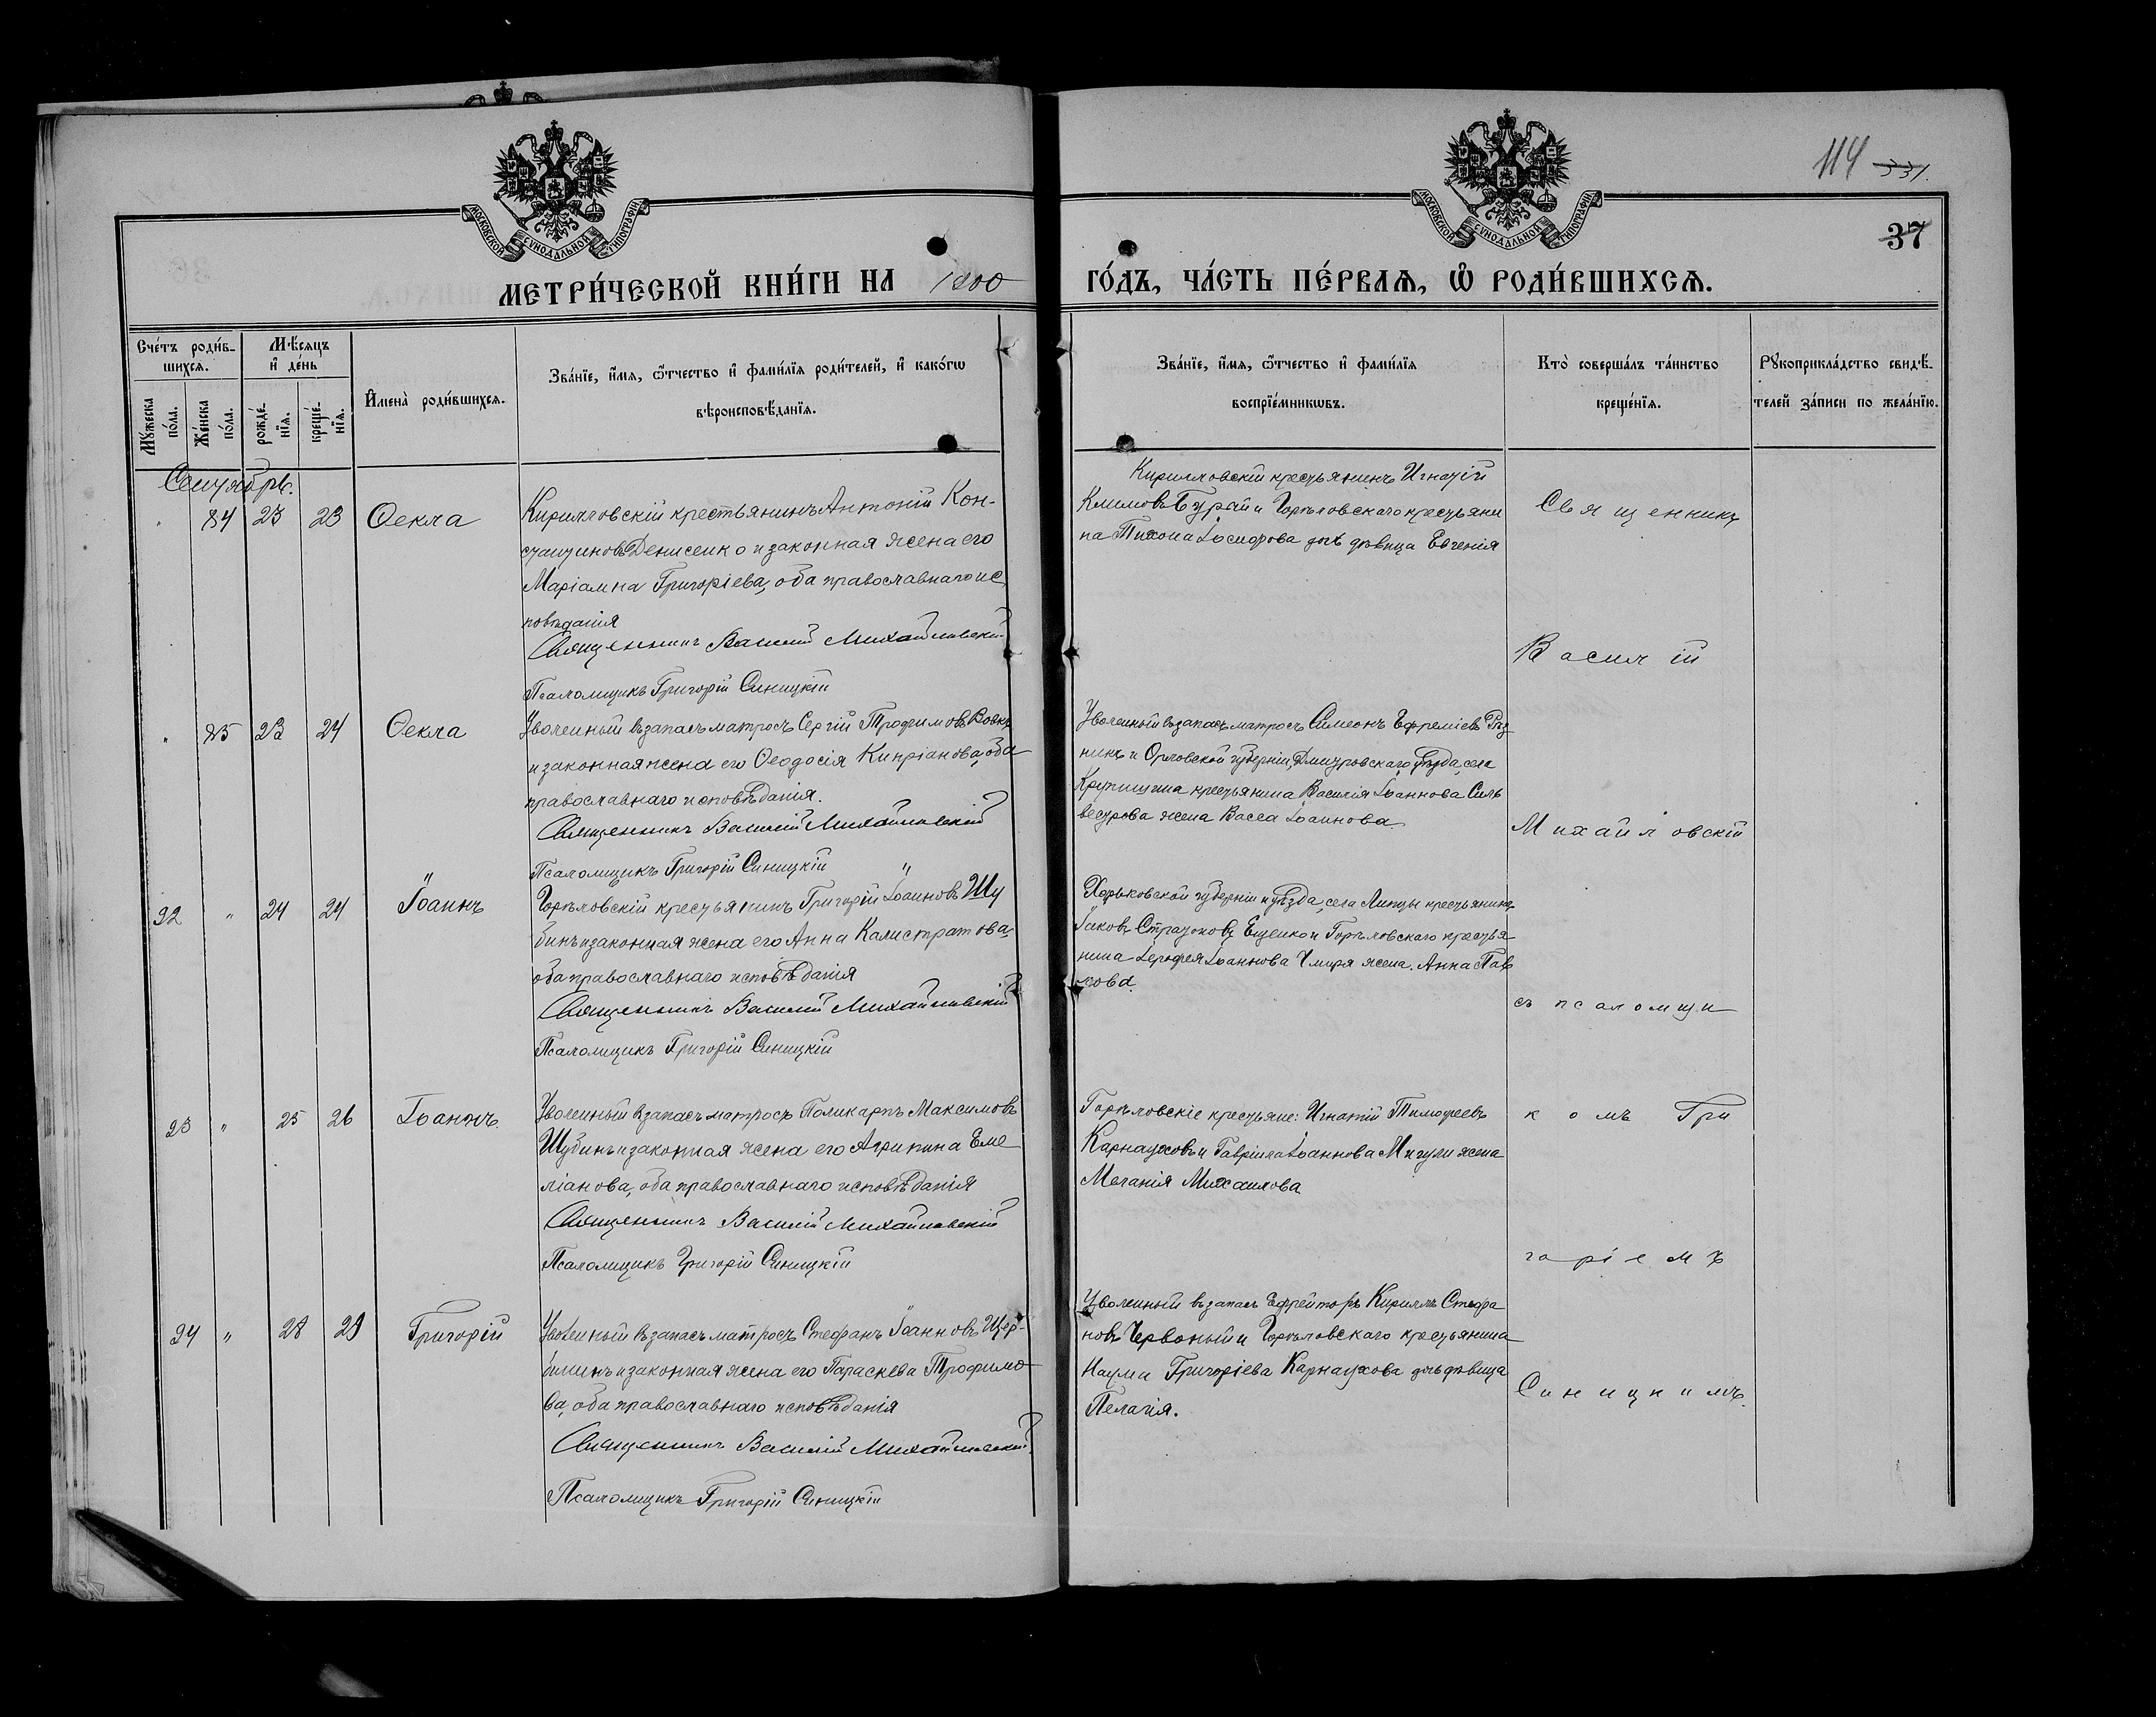 МОСКОВСКОЙ СУНОДАЛЬНОЙ ТИПОГРАФІИ
МОСКОВСКОЙ СУНОДАЛЬНОЙ ТИПОГРАФІИ
114 331.
37
МЕТРИ́ЧЕСКОЙ КНИ́ГИ НА 1900
ГО́ДЪ, ЧА́СТЬ ПЕ́РВАѦ, Ѡ҆ РОДИ́ВШИХСѦ.
Сче́тъ роди́в-
шихсѧ.
Мѣ́сѧцъ
и҆ де́нь
Мꙋ́жеска
по́ла.
Же́нска
по́ла.
рожде́-
нїѧ.
креще́-
нїѧ.
И҆мена̀ роди́вшихсѧ.
Зва́нїе, и҆́мѧ, ѻ҆́тчество и҆ фами́лїѧ роди́телей, и҆ како́гѡ
вѣроисповѣ́данїѧ.
Зва́нїе, и҆́мѧ, ѻ҆́тчество и҆ фами́лїѧ
воспрїе́мникѡвъ.
Кто̀ соверша́лъ та́инство
креще́нїѧ.
Рꙋкоприкла́дство свидѣ́-
телей за́писи по жела́нїю.
Сентябрь.
" 84 23 23 Ѳекла
Кирилловскій крестьянинъ Антоній Кон-
стантиновъ Денисенко и законная жена его
Маріамна Григоріева, оба православнаго ис
повѣданія
Священникъ Василій Михайловскій
Псаломщикъ Григорій Синицкій
Кирилловскій крестьянинъ Игнатій
Климовъ Бурай и Горѣловскаго крестьяни
на Тихона Іосифова дочь дѣвица Евгенія
Священникъ
Василій
" 85 23 24 Ѳекла
Уволенный въ запасъ матросъ Сергій Трофимовъ Вовкъ
и законная жена его Ѳеодосія Кипріанова, оба
православнаго исповѣданія.
Священникъ Василій Михайловскій
Псаломщикъ Григорій Синицкій
Уволенный въ запасъ матросъ Симеонъ Ефреміевъ Рѣз
никъ и Орловской губерніи, Дмитровскаго уѣзда, села
Крупишина крестьянина Василія Іоаннова Силь
вестрова жена Васса Іоаннова
Михайловскій
92 " 24 24 Іоаннъ
Горѣловскій крестьянинъ Григорій Іоанновъ Шу
бинъ и законная жена его Анна Калистратова,
оба православнаго исповѣданія
Священникъ Василій Михайловскій
Псаломщикъ Григорій Синицкій
Харьковской губерніи и уѣзда, села Липцы крестьянинъ
Іаковъ Ещенко и Горѣловскаго крестья
нина Іерофея Іоаннова жена Анна Пав
лова.
съ псаломщи
93 " 25 26 Іоаннъ.
Уволенный въ запасъ матросъ Поликарпъ Максимовъ
Шубинъ и законная жена его Агрипина Еме
ліанова, оба православнаго исповѣданія
Священникъ Василій Михайловскій
Псаломщикъ Григорій Синицкій
Горѣловскіе крестьяне: Игнатій Тимофеевъ
Карнауховъ и Гавріила Іоаннова Мигули жена
Меланія Михаилова
комъ Гри
горіемъ
94 " 28 29 Григорій
Уволенный въ запасъ матросъ Стефанъ Іоанновъ Щер-
бининъ и законная жена его Параскева Трофимо
ва, оба православнаго исповѣданія
Священникъ Василій Михайловскій.
Псаломщикъ Григорій Синицкій
Уволенный въ запасъ Ефрейторъ Кириллъ Стефа
новъ Червоный и Горѣловскаго крестьянина
Наума Григоріева Карнаухова дочь дѣвица
Пелагія.
Синицкимъ.